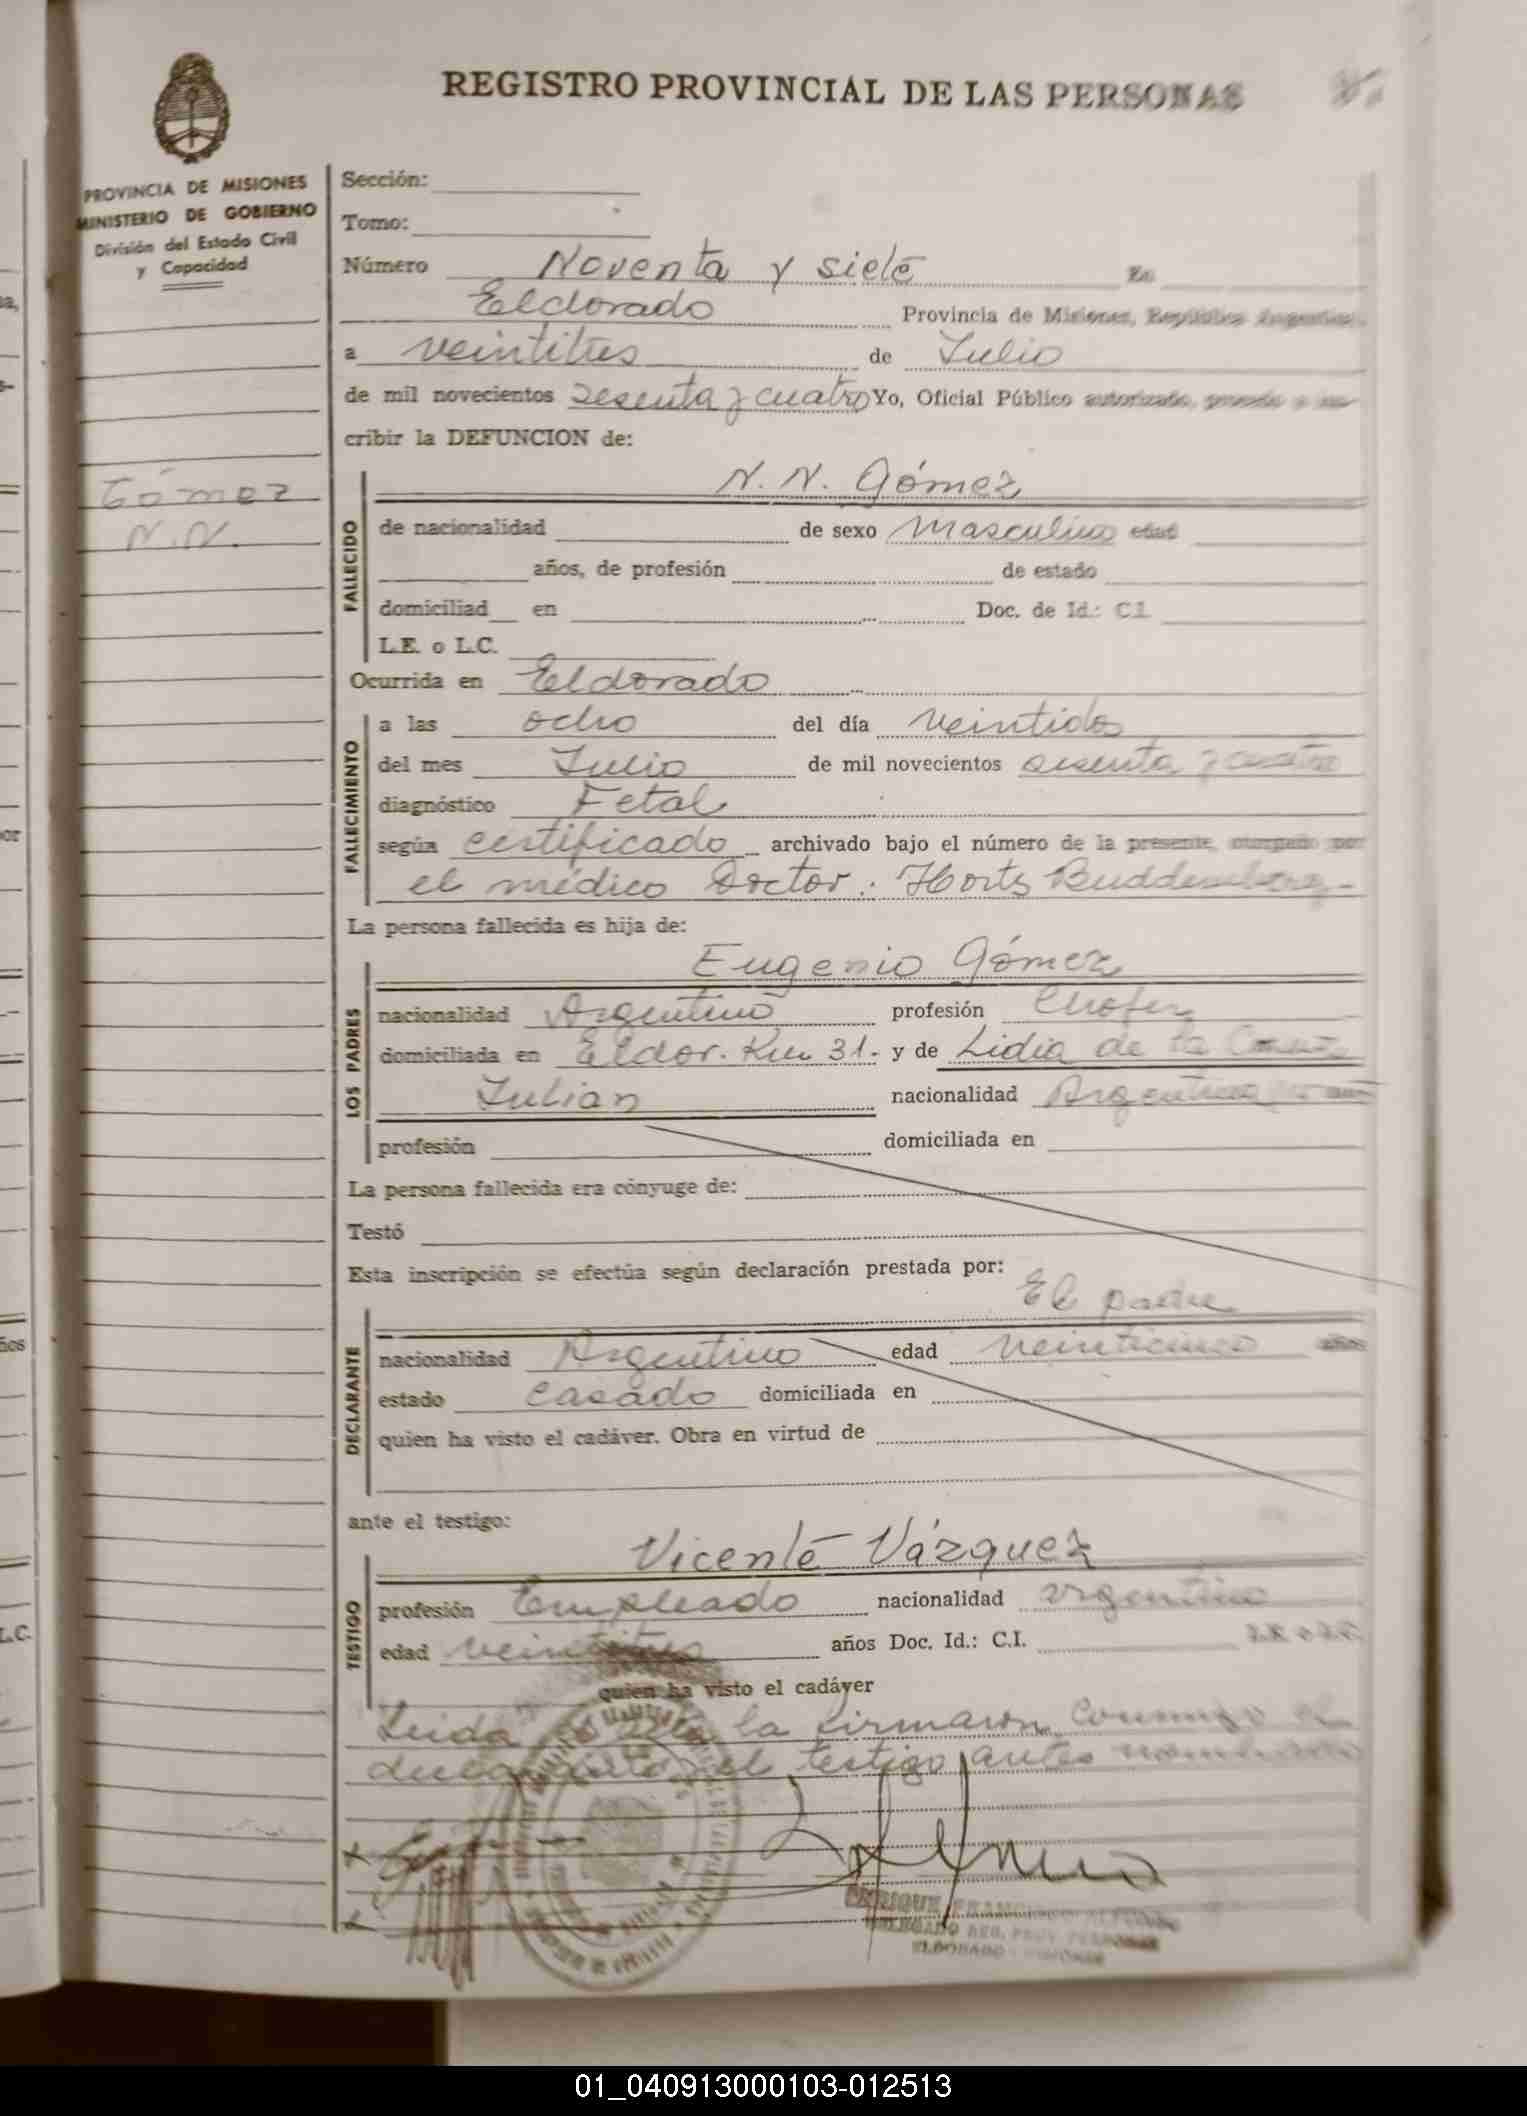 REGISTRO PROVINCIAL DE LAS PERSONAS
PROVINCIA DE MISIONES
MINISTERIO DE GOBIERNO
División del Estado Civil
y Capacidad
Gómez
N.N.
Sección:
Tomo:
Número Noventa y siete En
Eldorado Provincia de Misiones, República Argentina,
a veintitres de Julio
de mil novecientos sesenta y cuatro Yo, Oficial Público autorizado, procedo a ins-
cribir la DEFUNCION de:
N. N. Gómez
FALLECIDO
de nacionalidad de sexo Masculino edad
años, de profesión de estado
domiciliad en Doc. de Id.: C.I.
L.E. o L.C.
Ocurrida en Eldorado
FALLECIMIENTO
a las ocho del día veintidos
del mes Julio de mil novecientos sesenta y cuatro
diagnóstico Fetal
según certificado archivado bajo el número de la presente, otorgado por
el médico Doctor: Horts Buddemberg-
La persona fallecida es hija de:
Eugenio Gómez
LOS PADRES
nacionalidad Argentino profesión Chofer
domiciliada en Eldor. Km 31. y de Lidia de la
Julian nacionalidad Argentina
profesión domiciliada en
La persona fallecida era cónyuge de:
Testó
Esta inscripción se efectúa según declaración prestada por:
El padre
DECLARANTE
nacionalidad Argentino edad veinticinco años
estado casado domiciliada en
quien ha visto el cadáver. Obra en virtud de
ante el testigo:
Vicente Vázquez
TESTIGO
profesión Empleado nacionalidad argentino
edad veintitres años Doc. Id.: C.I.
quien ha visto el cadáver
Leida la firmaron conmigo el
el testigo antes nombrado
ENRIQUE FRANCISCO
DELEGADO REG. PROV. PERSONAS
ELDORADO - MISIONES
01_040913000103-012513